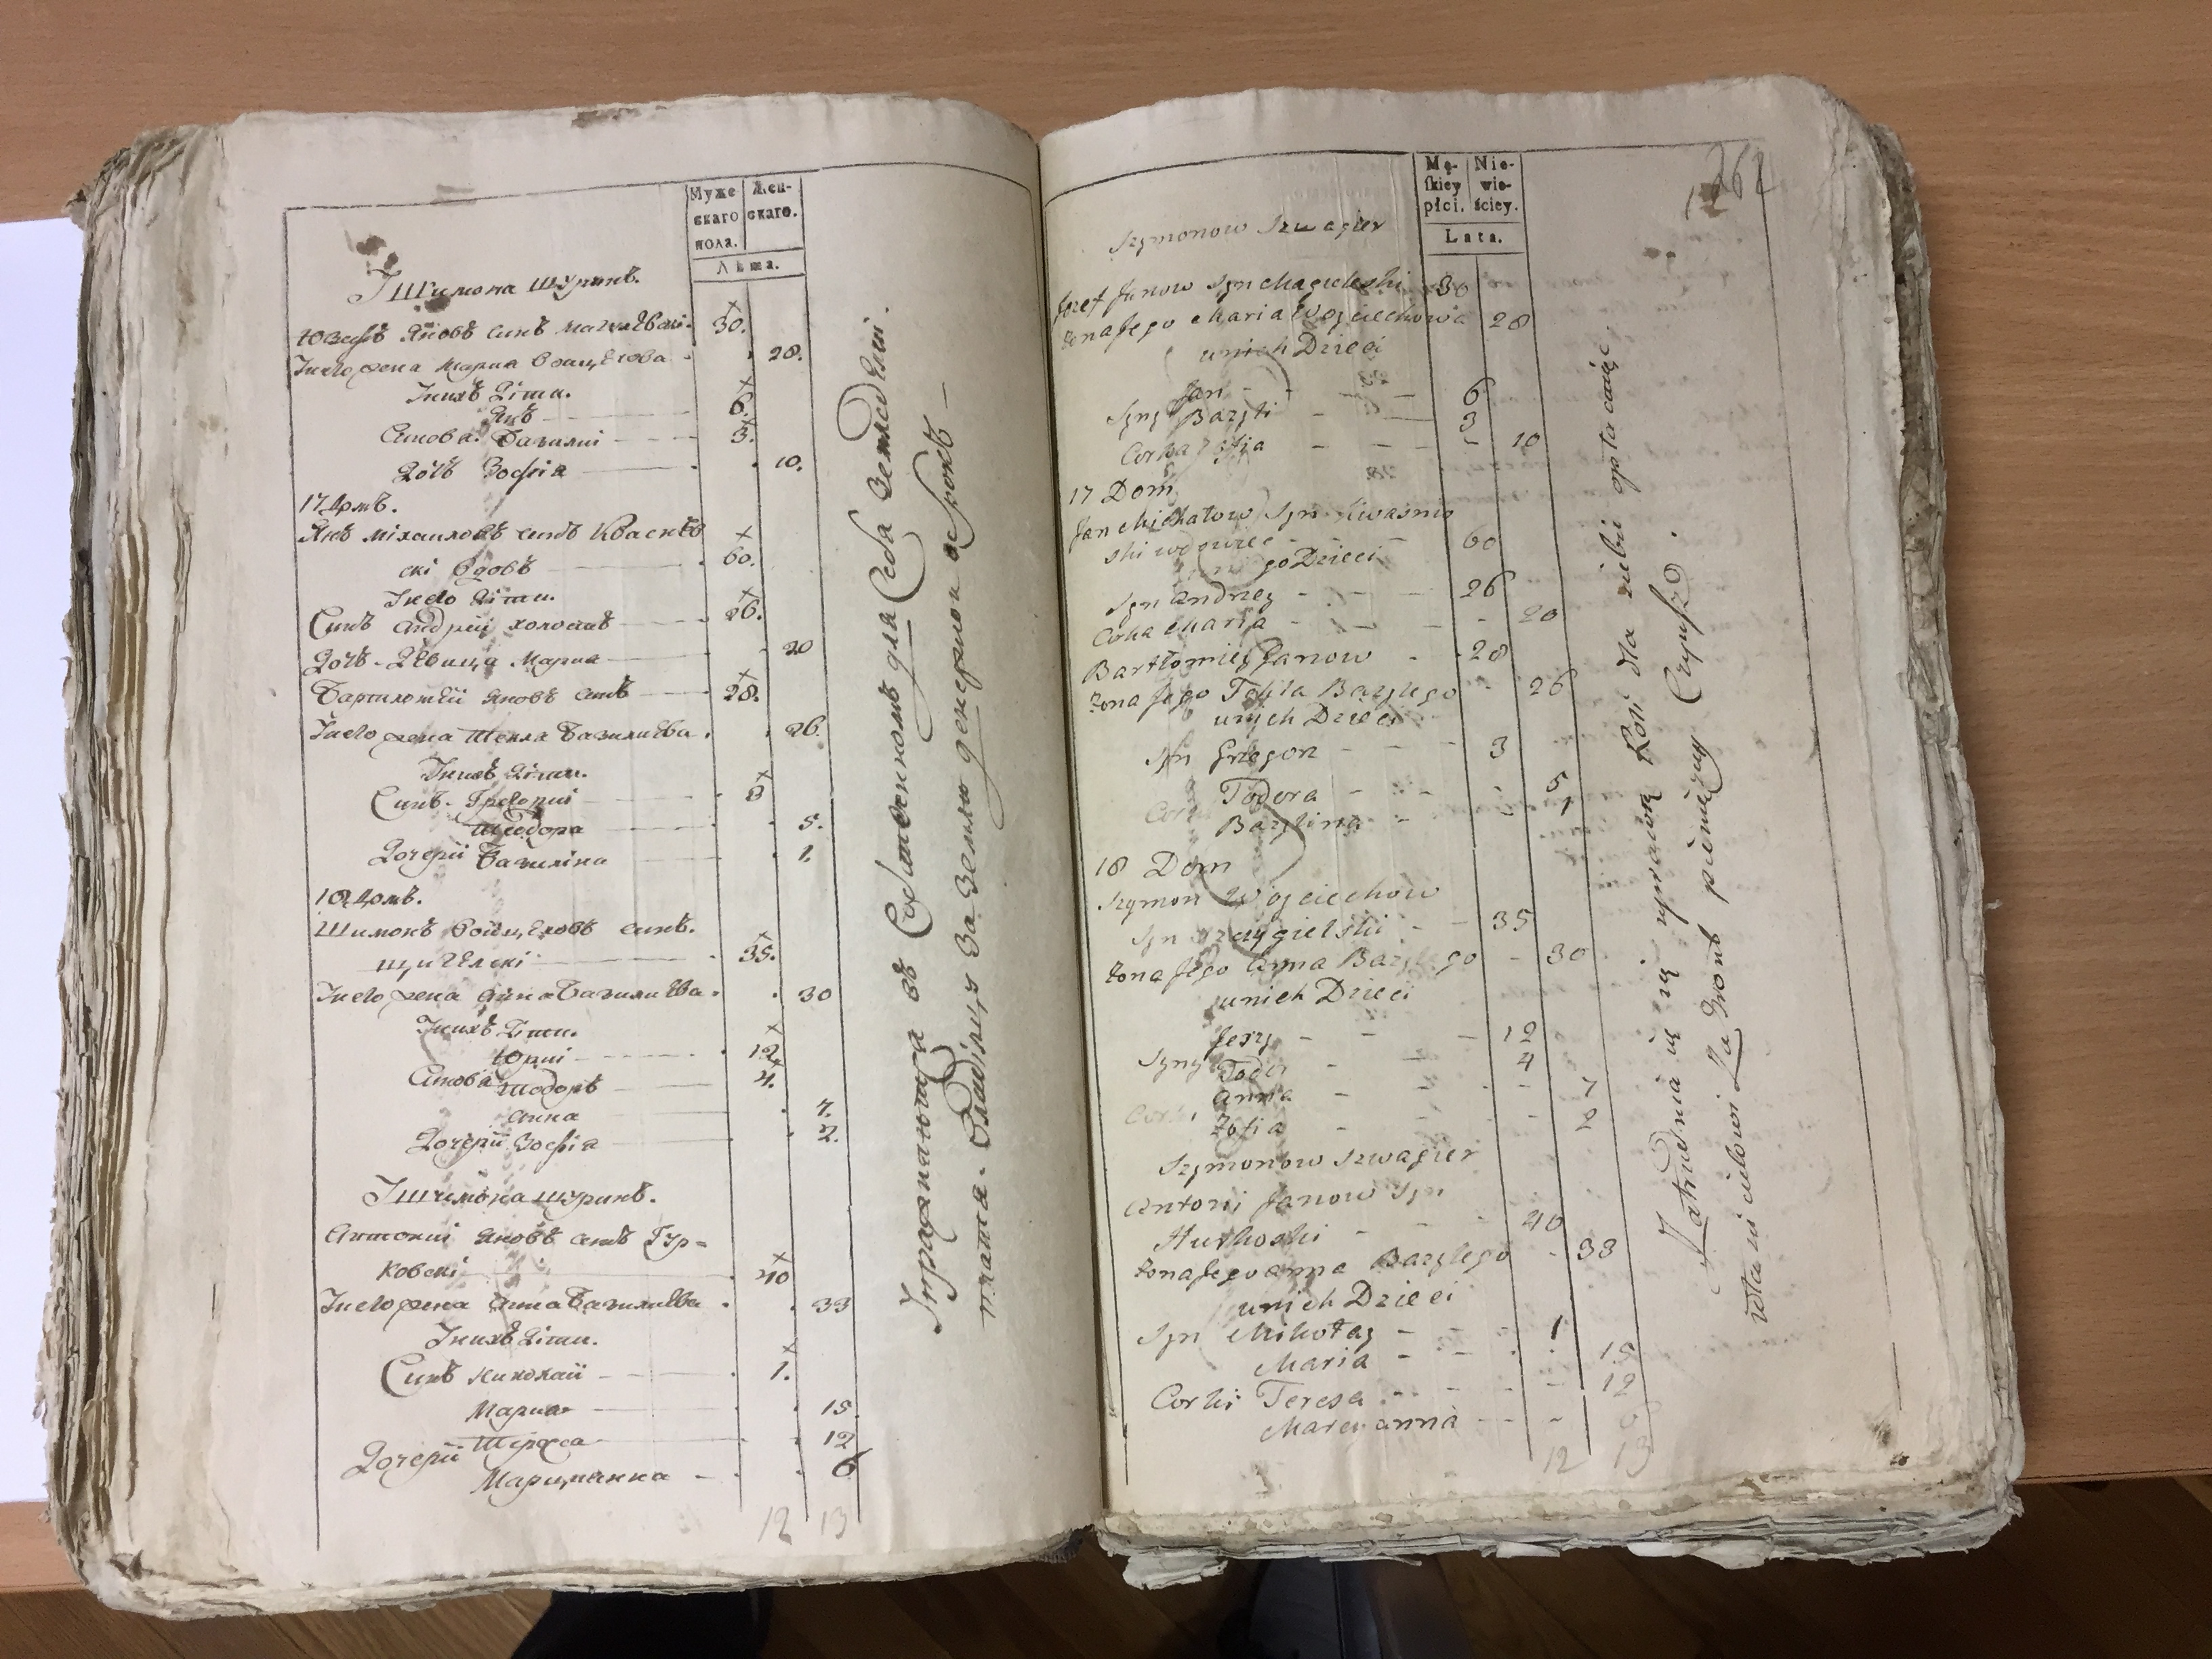 Муже
скаго
пола.
Жен-
скаго.
Лѣта.
Шимона Шуринъ.
Юзефъ Яновъ синъ
30.
Іисего жена Мариа Войцѣхова
28.
Іинихъ Дѣти.
Янъ
6.
Синова. Базилии
3.
Дочъ Зофия
10.
17 Домъ.
Янъ Міхаиловъ синъ Кваснѣв
скі Вдовъ
60.
Іисего Дѣти.
Синъ Андрей холостъ
26.
Дочъ - Дѣвица Мариа
20
Бартломѣй Яновъ синъ
28.
Іисего жена Текла Базилиева
26.
Іинихъ Дѣти.
Синъ - Грегории
3
Теодора
5.
Дочерii Базилина
1.
18 Домъ.
Шимонъ Войцѣховъ синъ.
Щигѣлскі
35.
Іисего жена Анна Базилиева
30
Іинихъ Дѣти.
Юрии
12.
Синова Тодоръ
4.
Анна
7.
Дочерii Зофiа
2.
Шимона Шуринъ.
Антонии Яновъ синъ Гур-
ковскі
40
Іисего жена Анна Базилиева
33
Іинихъ Дѣти.
Синъ Николай
1.
Мариа
15.
Тереса
12
Дочерii
Марцианна
6
12 13
262
Mę-
skiey
płci.
Nie-
wie-
ściey.
Lata.
Szymonow Szwagier
Jozef Janow Syn
30
żona Jego Maria Woyciechowa
28
unich Dzieci
Jan
6
Syny Bazyli
3
Corka Zofia
10
17 Dom
Jan Michałow Syn Kwasnie
ski wdowiec
60
go Dzieci
Syn Andrzey
26
Corka Maria
20
Bartłomiey Janow
28
żona Jego Tekla Bazylego
26
unich Dzieci
Syn Gregorz
3
Todora
5
Corki
Bazylina
1
18 Dom
Szymon Woyciechow
Syn Szczygielski
35
żona Jego Anna Bazylego
30
unich Dzieci
Jerzy
12
Syny Todor
4
Anna
7
Corki Zofia
2
Szymonow Szwagier
Antoni Janow Syn
Hurkoski
40
żona Jego anna Bazylego
33
unich Dzieci
Syn Mikołay
1
Maria
15
Corki Teresa
12
Marcyanna
6
12 13
Zatrudnia się uprawą Roli dla siebie opłacaiąc
właścicielowi Za Gront pieniężny Czynsz.